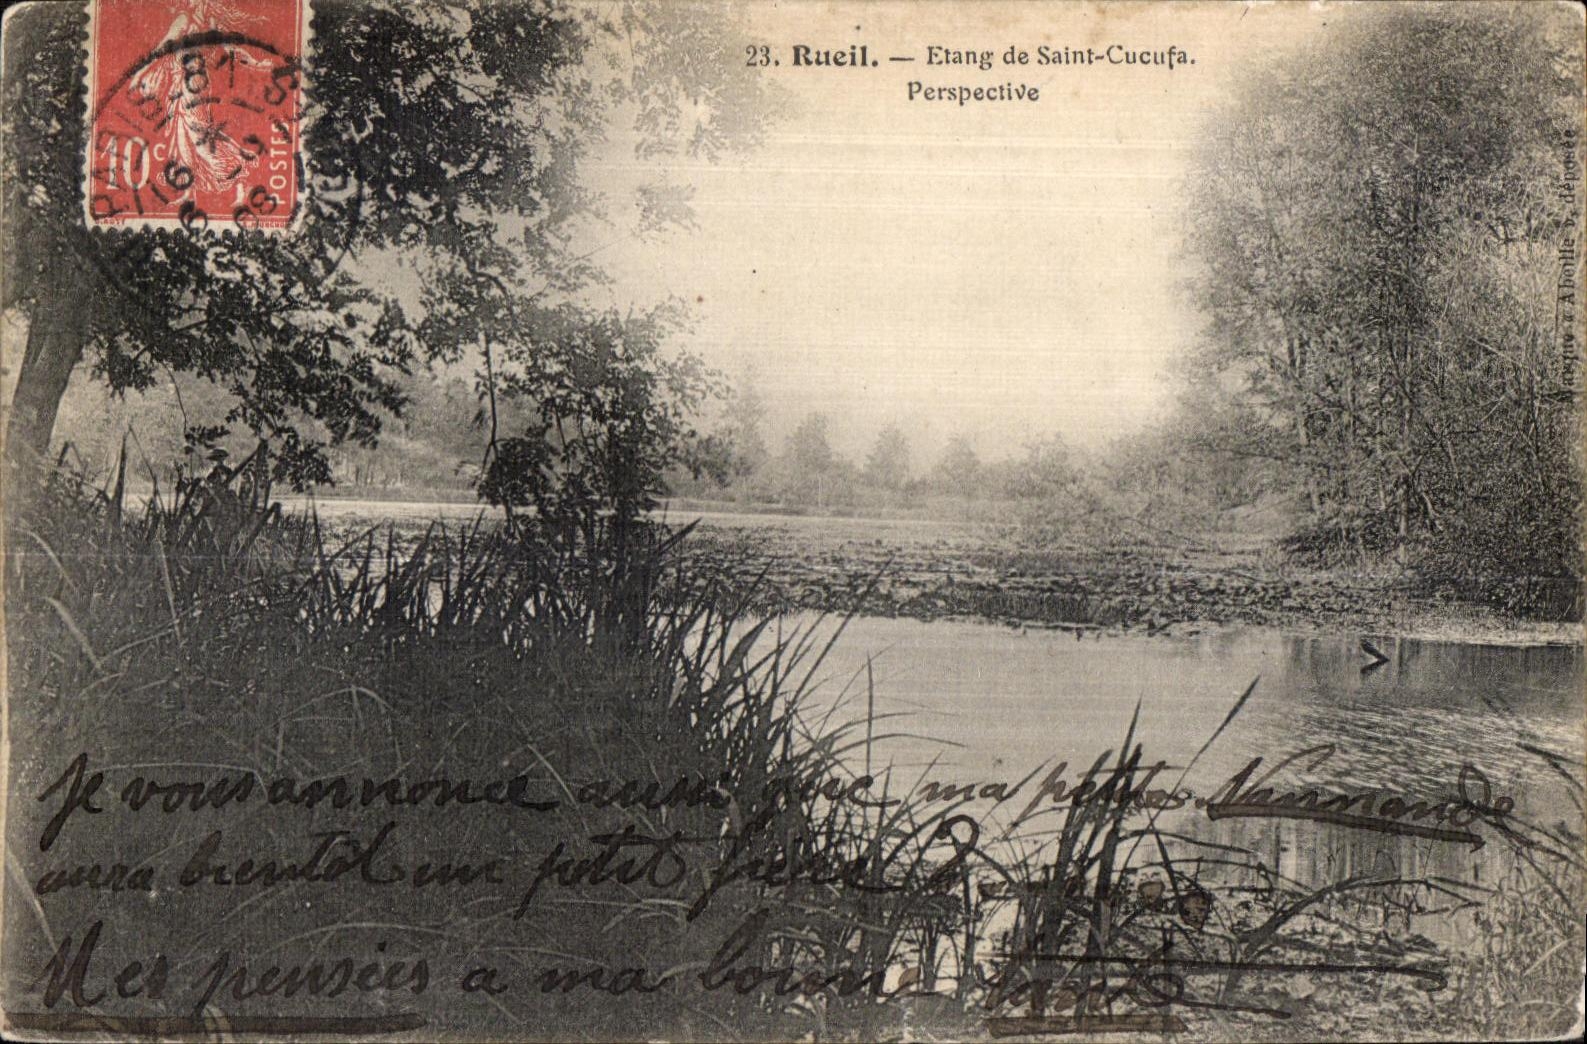 23. Rueil. — Etang de Saint-Cucufa.
Perspective
10 c
POSTES
PARIS
Marque « Abeille », déposée
Je vous annonce aussi que ma petite Normande
aura bientôt un petit frère ?
Mes pensées a ma bonne tante